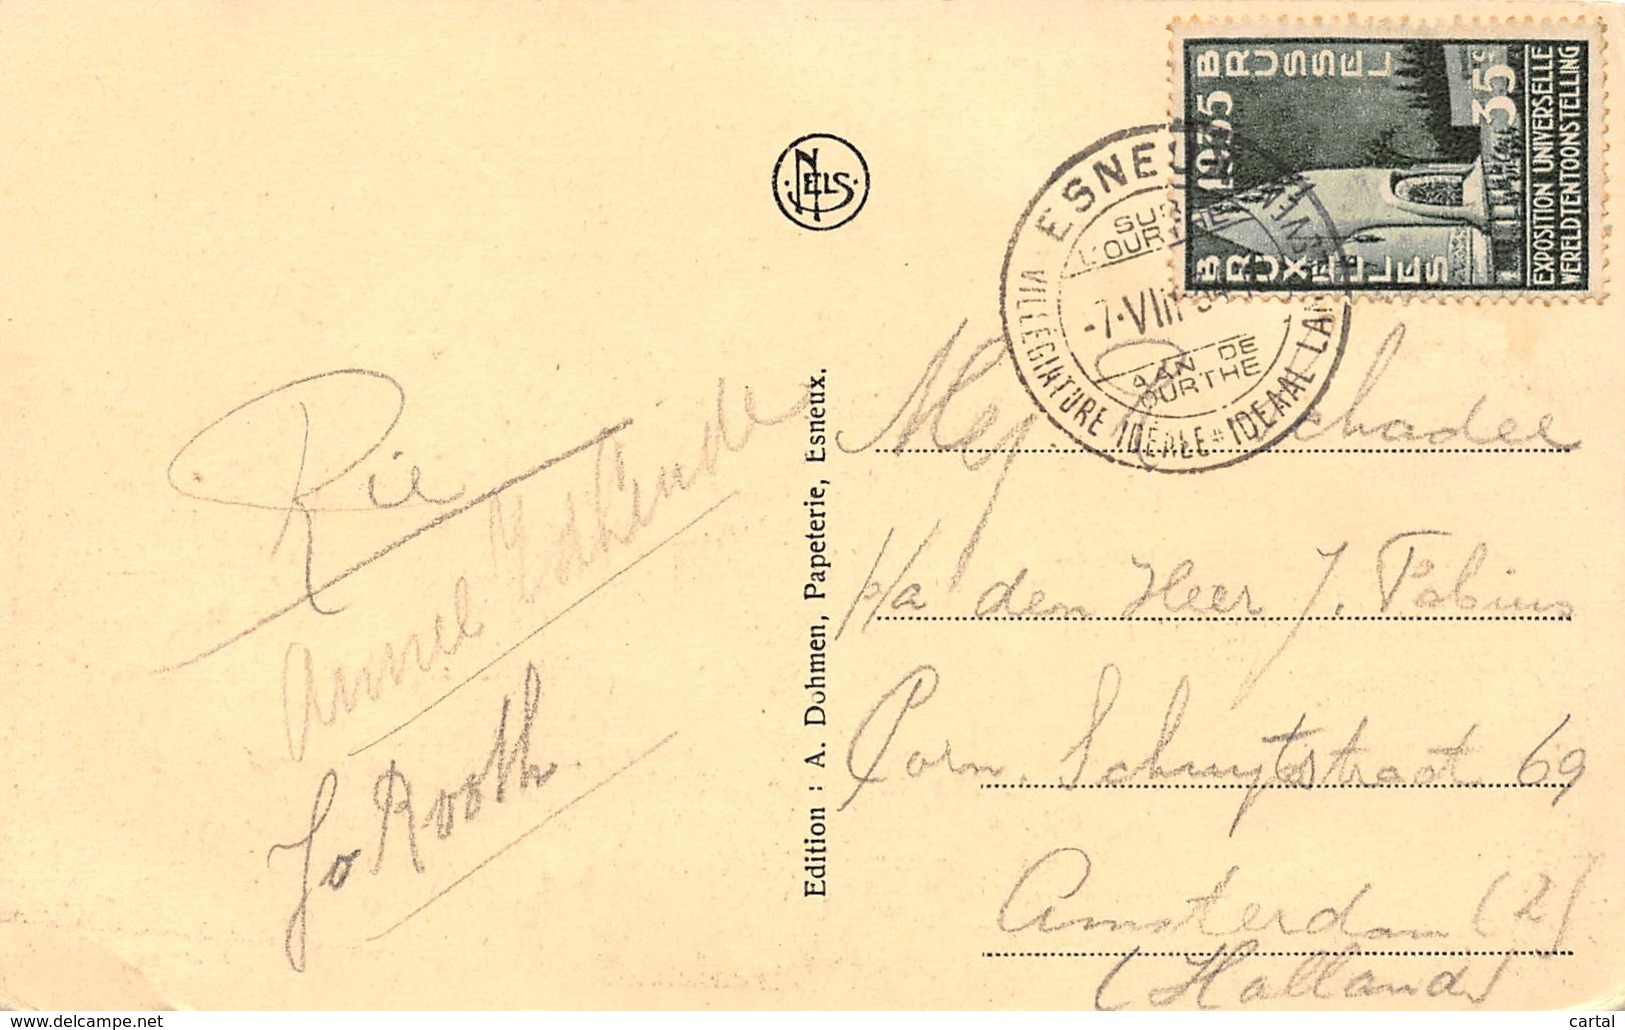 1935 BRUSSEL
35c
BRUXELLES
EXPOSITION UNIVERSELLE
WERELDTENTOONSTELLING
ESNEUX
SUR
L'OURTHE
-7.VIII
AAN DE
OURTHE
VILLÉGIATURE IDÉALE * IDEAAL
NELS
Edition : A. Dohmen, Papeterie, Esneux.
Rie
Annel
Jo Rooth
Mej. Schadee
p/a den Heer J. Tobius
Corn. Schuytstraat 69
Amsterdam (2)
(Holland)
www.delcampe.net
cartal